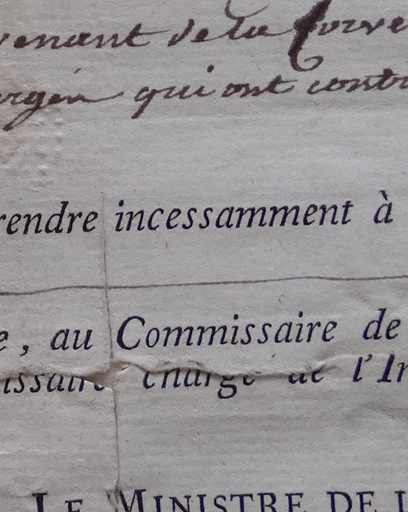 venant de la Corve
qui ont contr
rendre incessamment à
e, au Commissaire de
issaire chargé de l'In
LE MINISTRE DE L